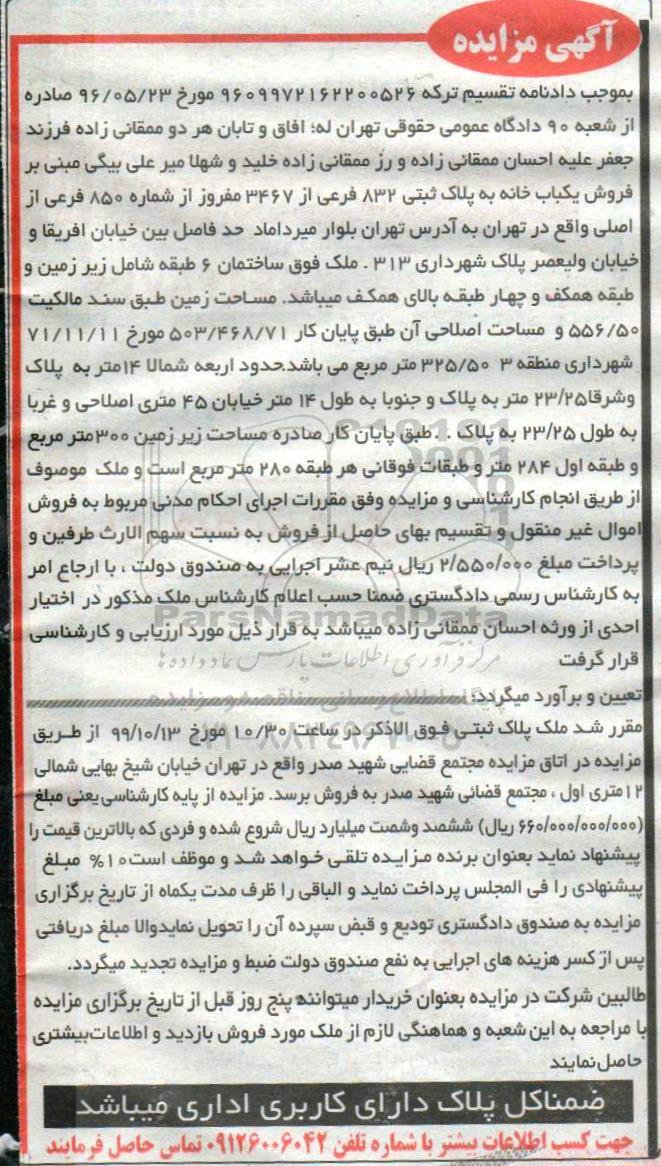 آگهی مزایده
بموجب دادنامه تقسیم ترکه ۹۶۰۹۹۷۲۱۶۲۲۰۰۵۲۶ مورخ ۹۶/۰۵/۲۳ صادره
از شعبه ۹۰ دادگاه عمومی حقوقی تهران له؛ افاق و تابان هر دو ممقانی زاده فرزند
جعفر علیه احسان ممقانی زاده و رز ممقانی زاده خلید و شهلا میر علی بیگی مبنی بر
فروش یکباب خانه به پلاک ثبتی ۸۳۲ فرعی از ۳۴۶۷ مفروز از شماره ۸۵۰ فرعی از
اصلی واقع در تهران به آدرس تهران بلوار میرداماد حد فاصل بین خیابان افریقا و
خیابان ولیعصر پلاک شهرداری ۳۱۳ . ملک فوق ساختمان ۶ طبقه شامل زیر زمین و
طبقه همکف و چهار طبقه بالای همکف میباشد. مساحت زمین طبق سند مالکیت
۵۵۶/۵۰ و مساحت اصلاحی آن طبق پایان کار ۵۰۳/۴۶۸/۷۱ مورخ ۷۱/۱۱/۱۱
شهرداری منطقه ۳ ۳۲۵/۵۰ متر مربع می باشد.حدود اربعه شمالا ۱۴متر به پلاک
وشرقا۲۳/۲۵ متر به پلاک و جنوبا به طول ۱۴ متر خیابان ۴۵ متری اصلاحی و غربا
به طول ۲۳/۲۵ به پلاک . . طبق پایان کار صادره مساحت زیر زمین ۳۰۰متر مربع
و طبقه اول ۲۸۴ متر و طبقات فوقانی هر طبقه ۲۸۰ متر مربع است و ملک موصوف
از طریق انجام کارشناسی و مزایده وفق مقررات اجرای احکام مدنی مربوط به فروش
اموال غیر منقول و تقسیم بهای حاصل از فروش به نسبت سهم الارث طرفین و
پرداخت مبلغ ۲/۵۵۰/۰۰۰ ریال نیم عشر اجرایی به صندوق دولت ، با ارجاع امر
به کارشناس رسمی دادگستری ضمنا حسب اعلام کارشناس ملک مذکور در اختیار
احدی از ورثه احسان ممقانی زاده میباشد به قرار ذیل مورد ارزیابی و کارشناسی
قرار گرفت
تعیین و برآورد میگردد؛
مقرر شد ملک پلاک ثبتی فوق الاذکر در ساعت ۱۰/۳۰ مورخ ۹۹/۱۰/۱۳ از طریق
مزایده در اتاق مزایده مجتمع قضایی شهید صدر واقع در تهران خیابان شیخ بهایی شمالی
۱۲متری اول ، مجتمع قضائی شهید صدر به فروش برسد. مزایده از پایه کارشناسی یعنی مبلغ
(۶۶۰/۰۰۰/۰۰۰/۰۰۰ ریال) ششصد وشصت میلیارد ریال شروع شده و فردی که بالاترین قیمت را
پیشنهاد نماید بعنوان برنده مزایده تلقی خواهد شد و موظف است۱۰% مبلغ
پیشنهادی را فی المجلس پرداخت نماید و الباقی را ظرف مدت یکماه از تاریخ برگزاری
مزایده به صندوق دادگستری تودیع و قبض سپرده آن را تحویل نمایدوالا مبلغ دریافتی
پس از کسر هزینه های اجرایی به نفع صندوق دولت ضبط و مزایده تجدید میگردد.
طالبین شرکت در مزایده بعنوان خریدار میتوانند پنج روز قبل از تاریخ برگزاری مزایده
با مراجعه به این شعبه و هماهنگی لازم از ملک مورد فروش بازدید و اطلاعات بیشتری
حاصل نمایند
ضمنا کل پلاک دارای کاربری اداری میباشد
جهت کسب اطلاعات بیشتر با شماره تلفن ۰۹۱۲۶۰۰۶۰۴۲ تماس حاصل فرمایند
ParsNamadData
مرکز فرآوری اطلاعات پارس نماد داده ها